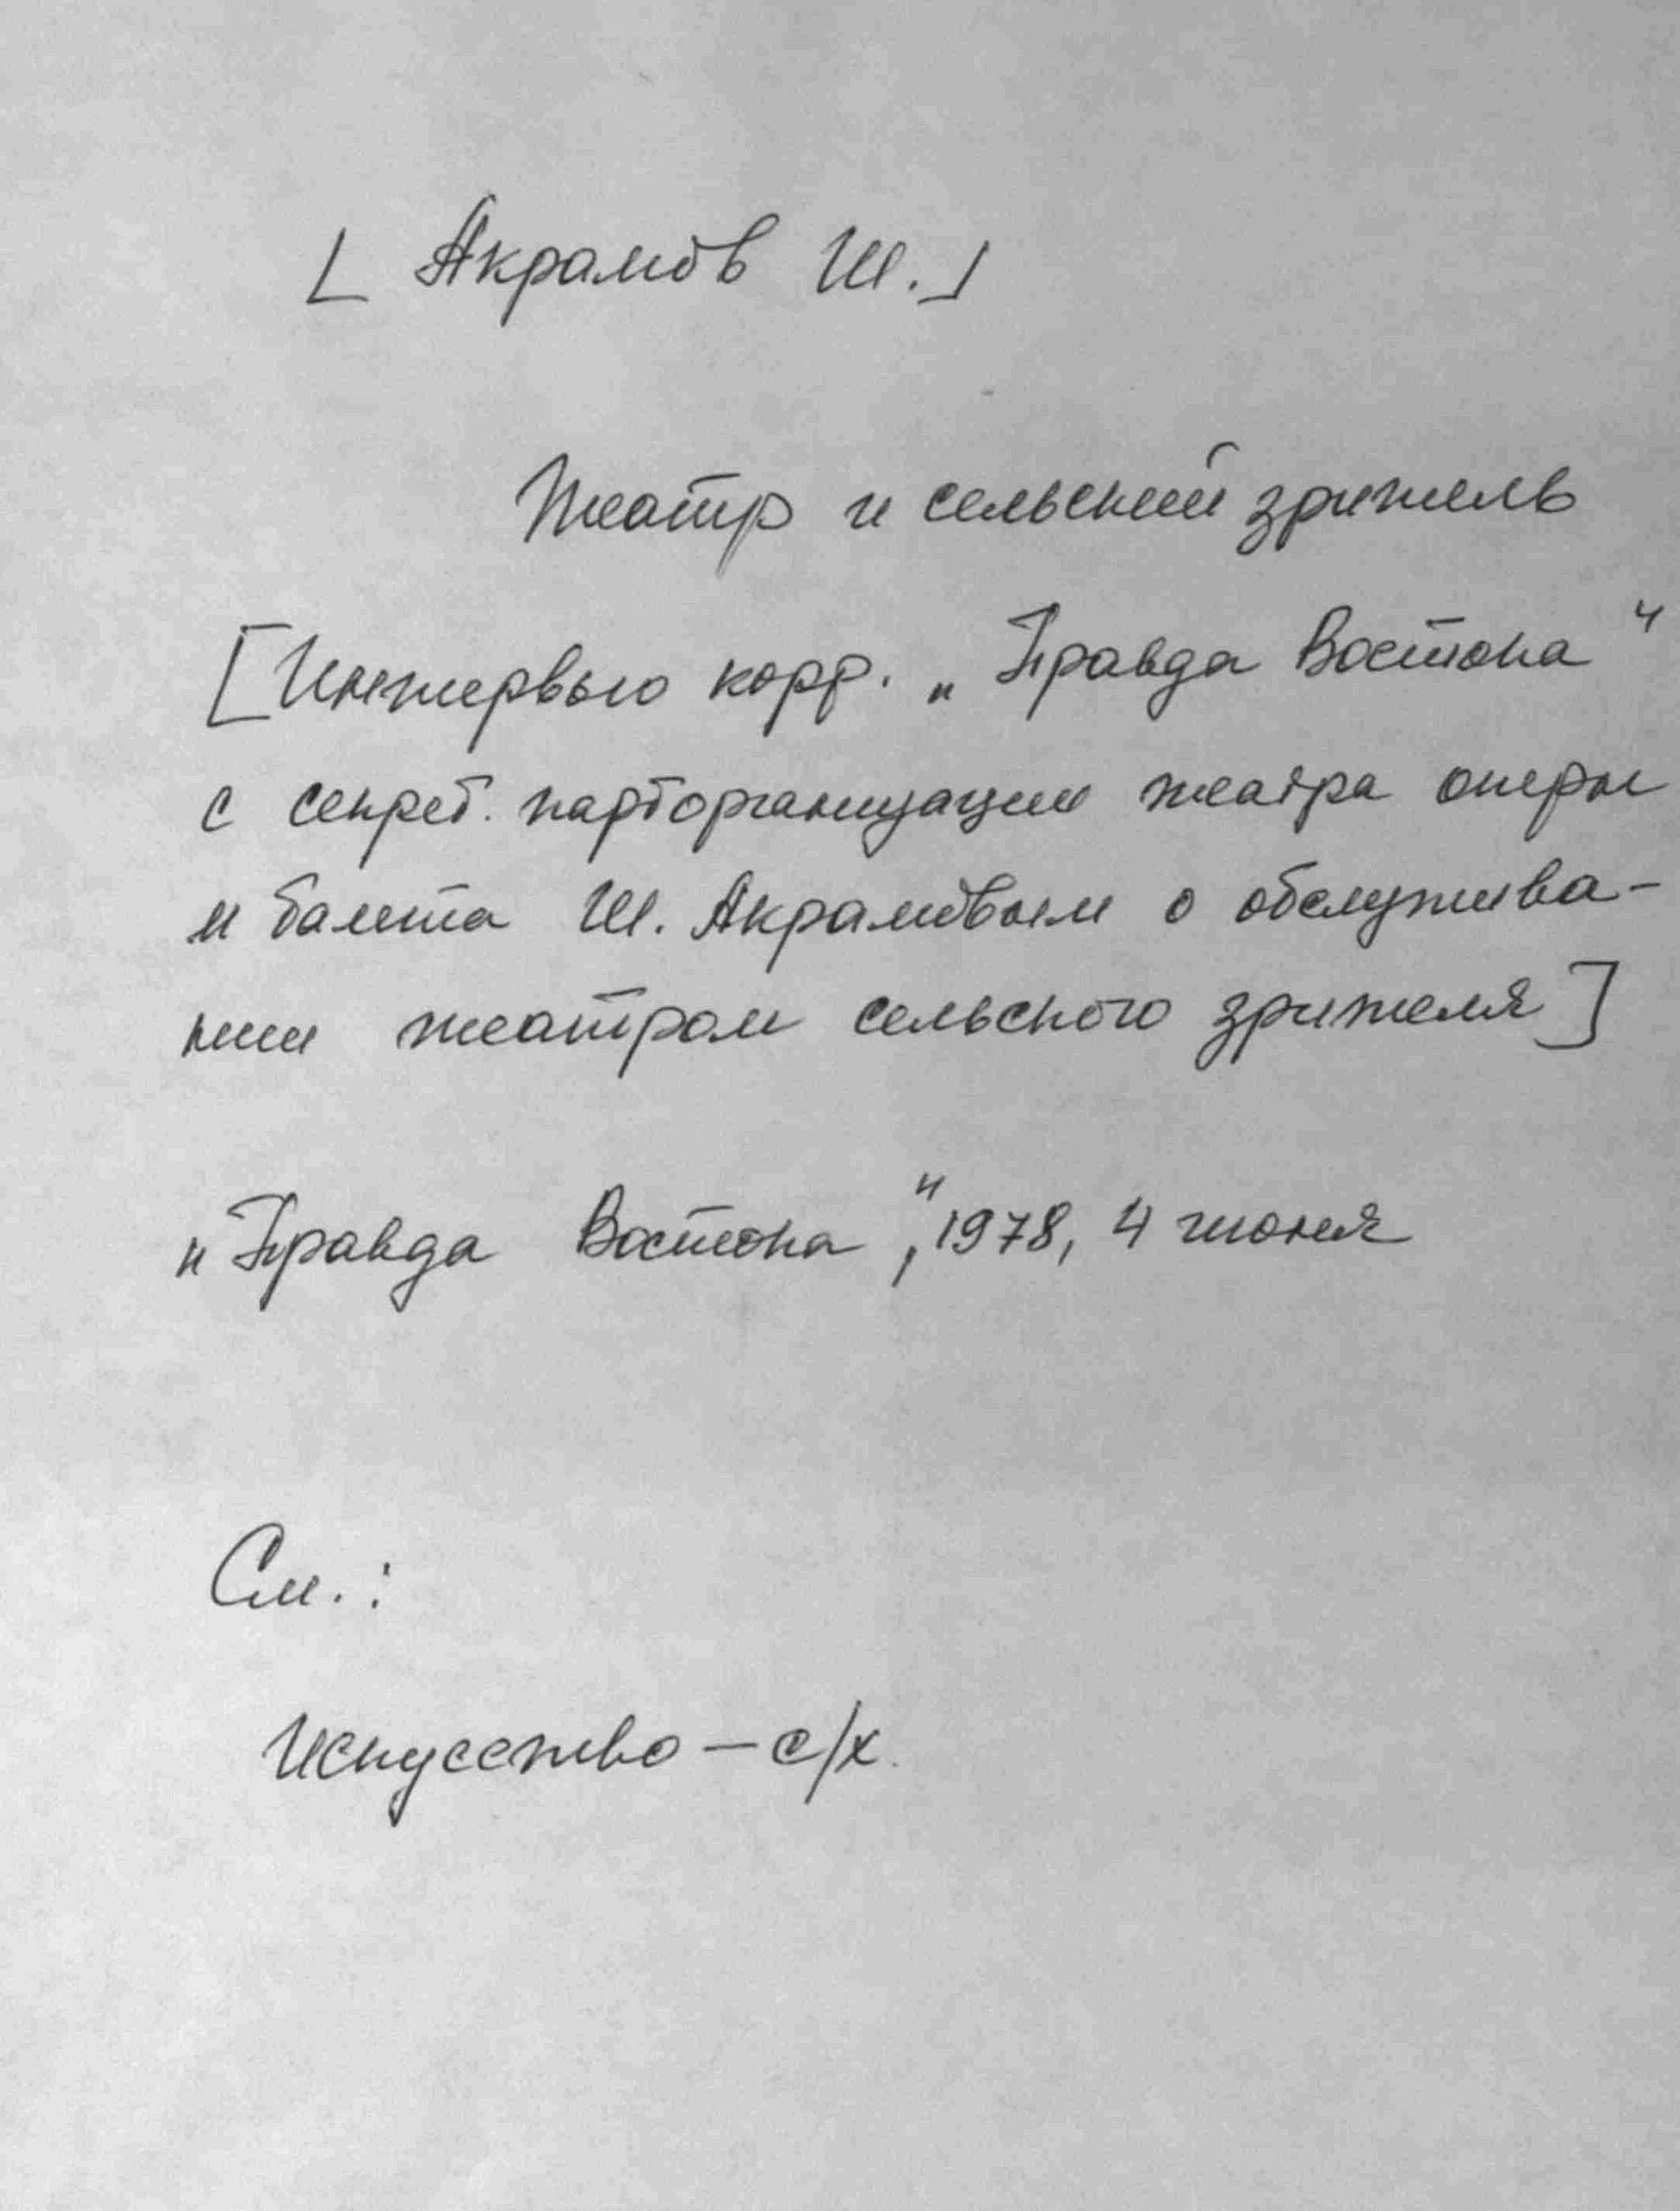 [Акрамов Ш.]
Театр и сельский зритель
[Интервью корр. „Правда Востока“
с секрет. парторганизации театра оперы
и балета Ш. Акрамовым о обслужива-
нии театром сельского зрителя]
„Правда Востока“, 1978, 4 июня
См.:
Искусство – с/х.